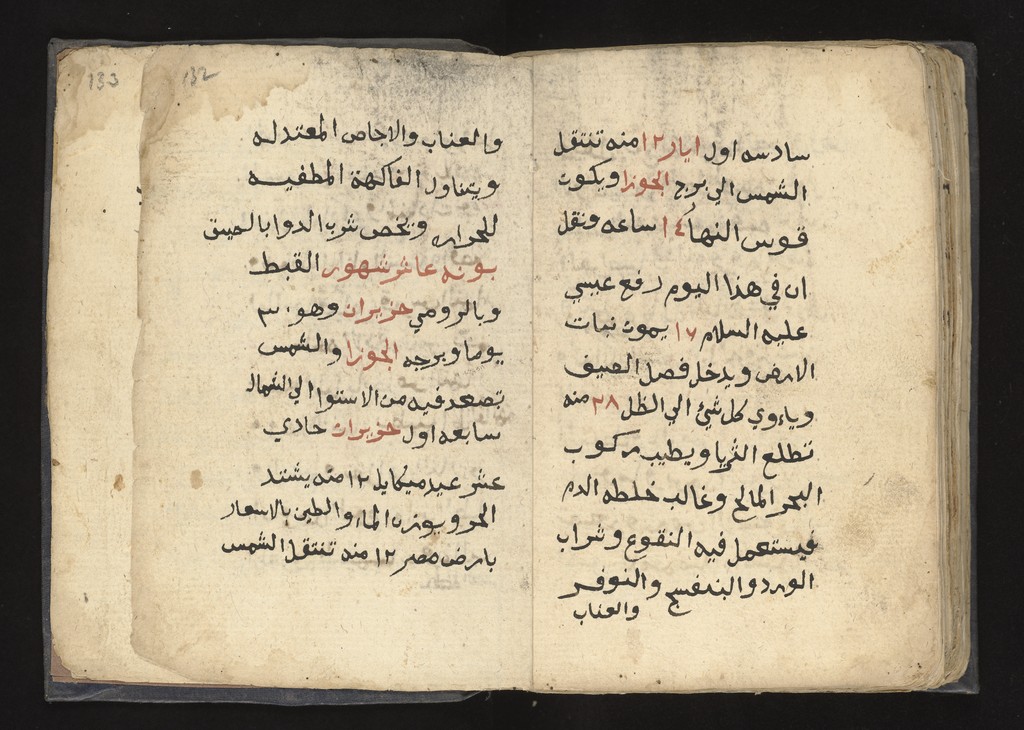 سادسه اول ايار ١٢ منه تنتقل
الشمس الي برج الجوزا ويكون
قوس النها ١٤ ساعه ونقل
ان في هذا اليوم رفع عيسي
عليه السلام ١٧ يموت نبات
الارض ويدخل فصل الصيف
وياءوي كل شئ الي الظل ٢٨ منه
تطلع الثريا ويطيب ركوب
البحر المالح وغالب خلطه الدم
فيستعمل فيه النقوع وشراب
الورد والبندفسج والنوفر
والعناب
132
133
والعناب والاجاص المعتدله
ويتناول الفاكهة المطفيه
للحراره وتخص شرب الدوا بالحبق
بونه عاشر شهور القبط
وبالرومي حزيران وهو ٣٠
يوما وبرجه الجوزا والشمس
تصعد فيه من الاستوا الي الشمال
سابعه اول حزيران حادي
عشر عيد ميكايل ١٢ منه يشتد
الحر ويوزن الماء والطين بالاسعار
بارض مصر ١٢ منه تنتقل الشمس